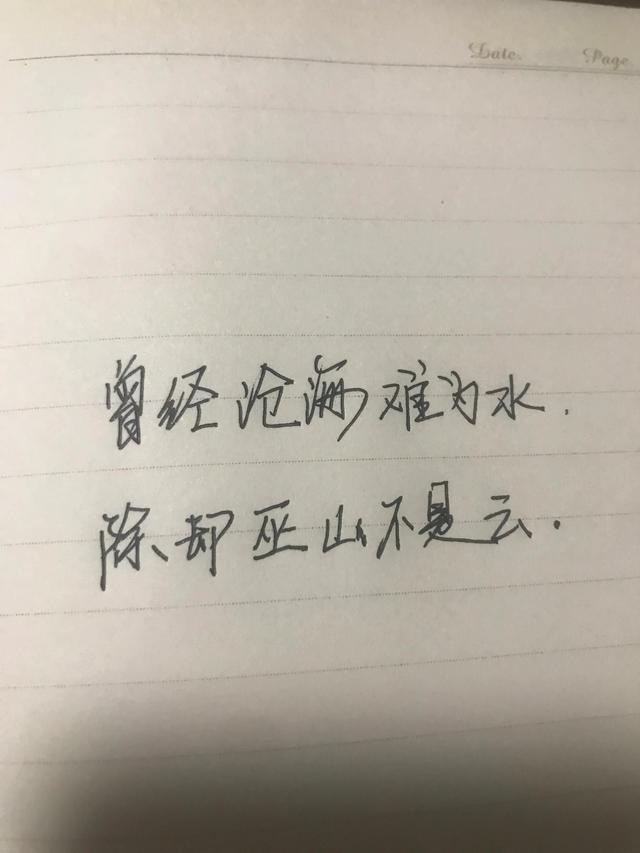 Date. Page
曾经沧海难为水.
除却巫山不是云.